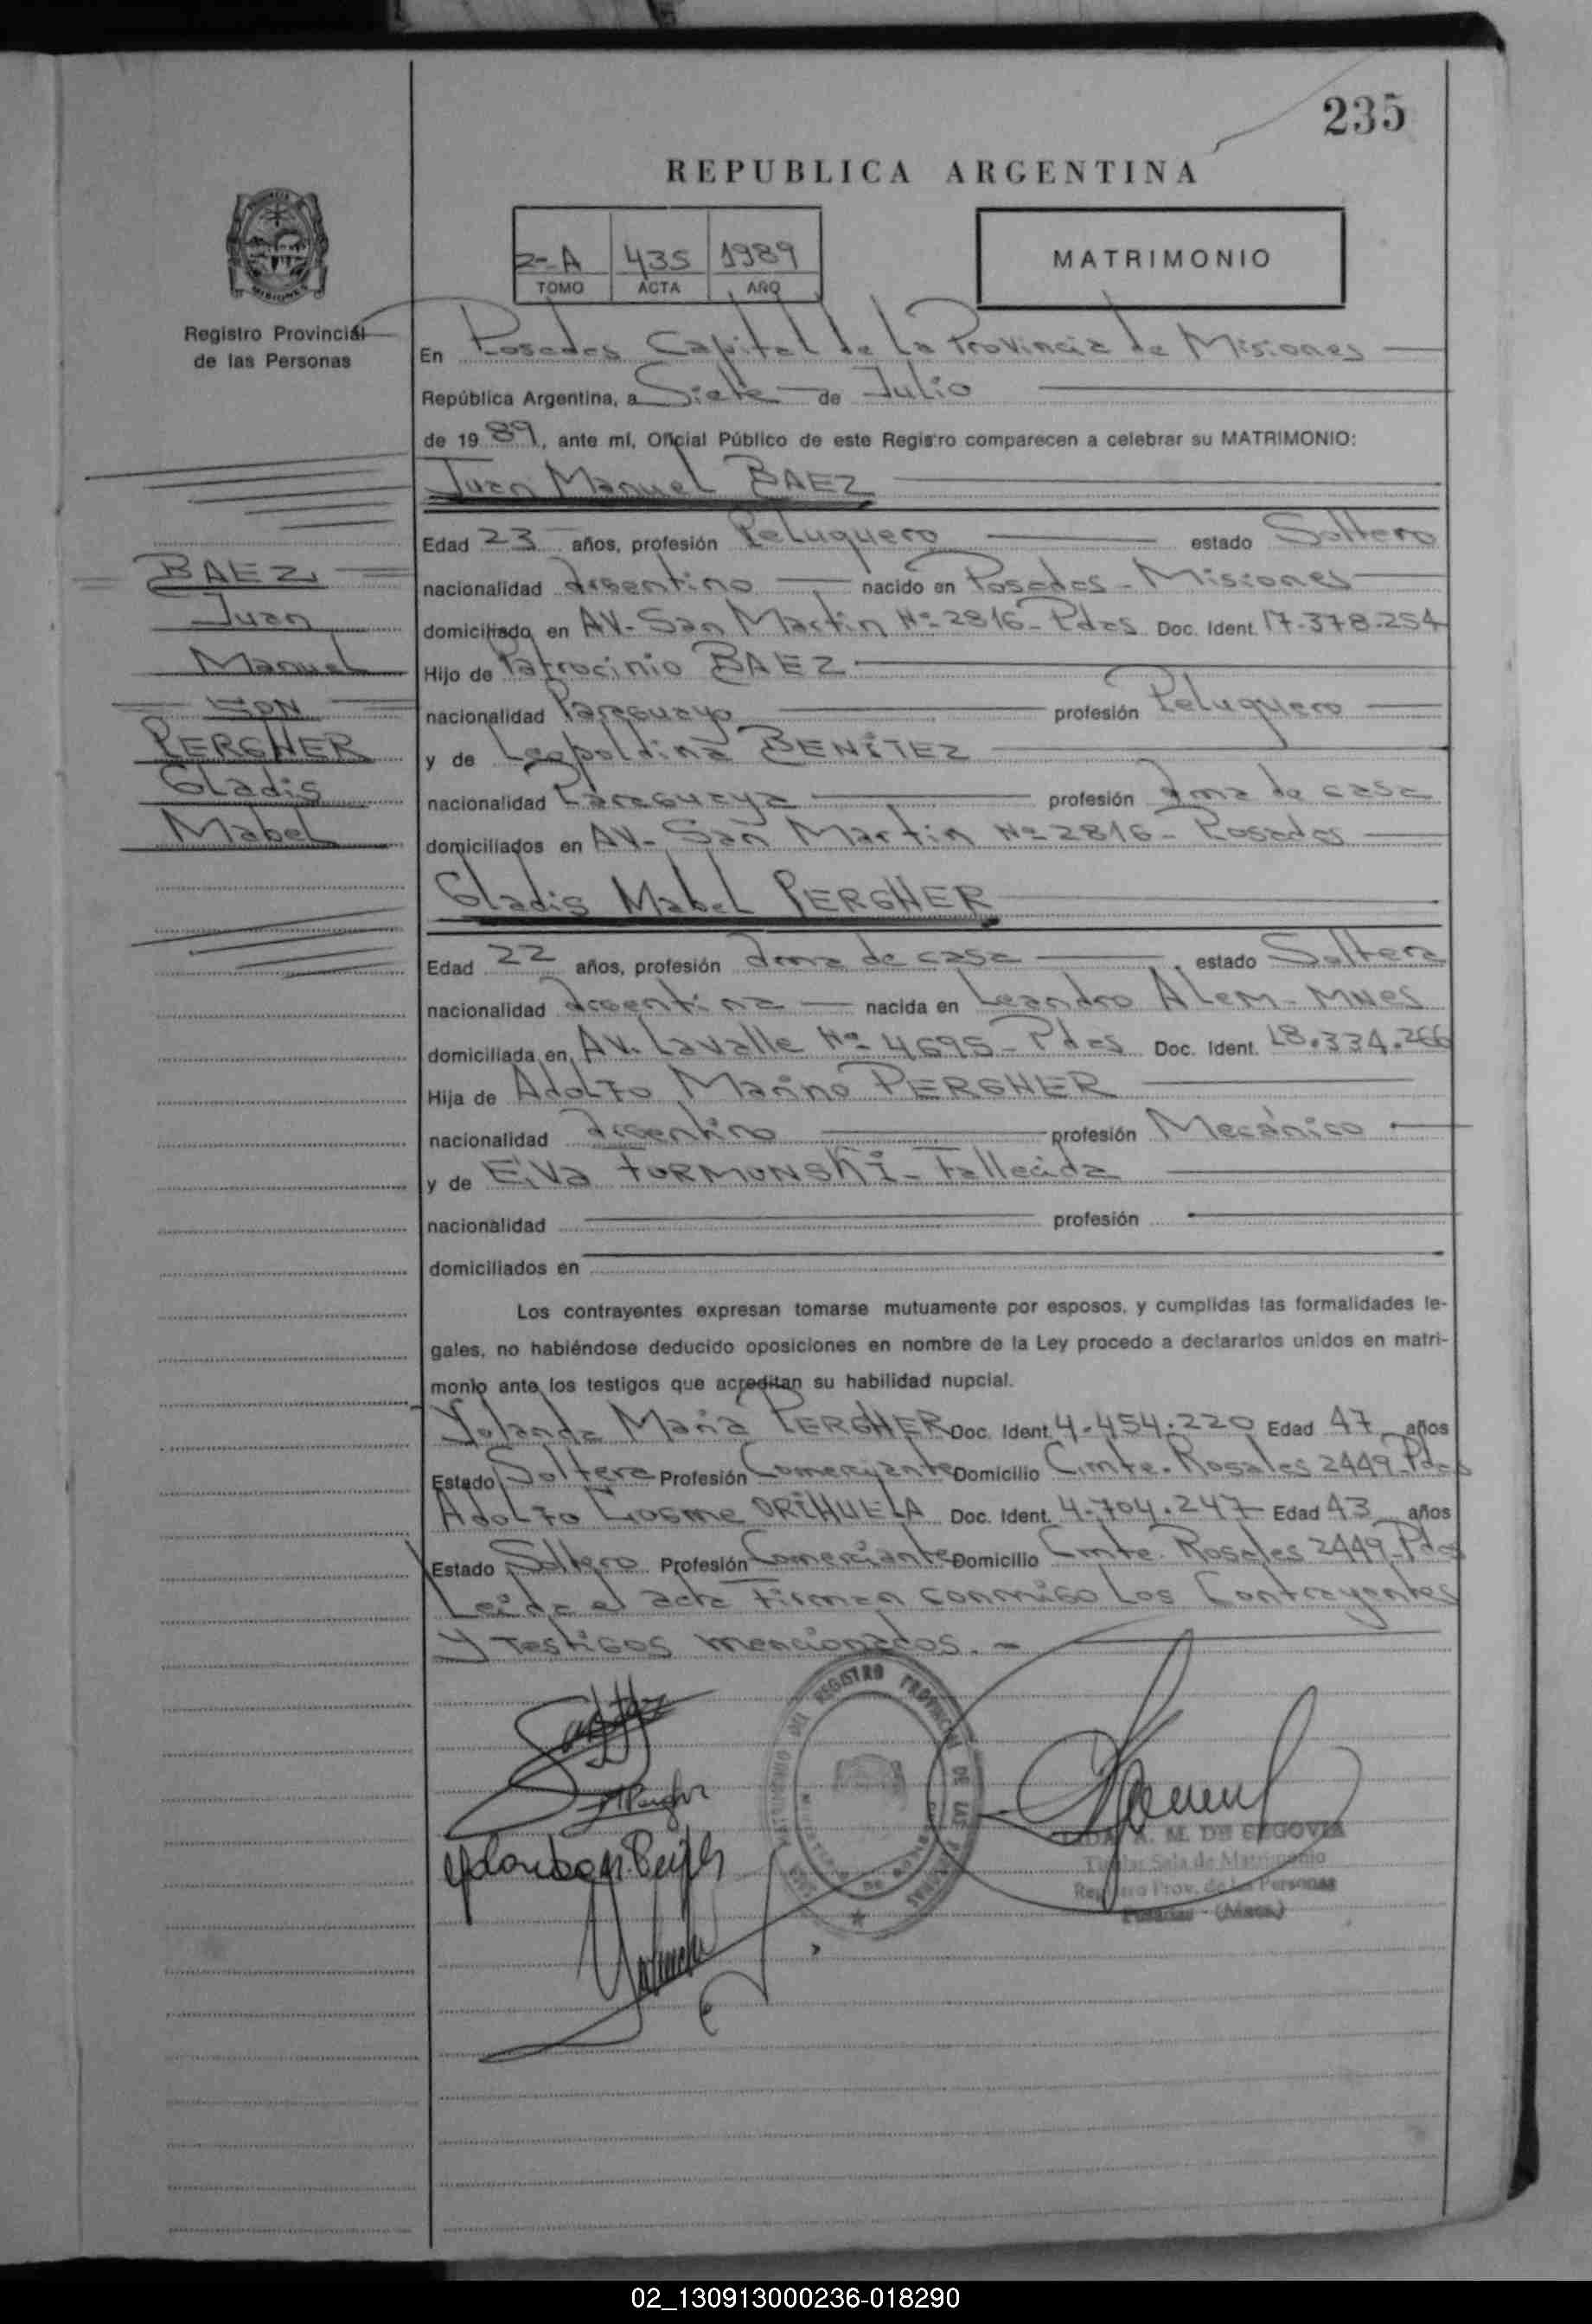 235
REPUBLICA ARGENTINA
2-A 435 1989
TOMO ACTA AÑO
MATRIMONIO
Registro Provincial
de las Personas
En Posadas Capital de La Provincia de Misiones
República Argentina, a Siete de Julio
de 19 89, ante mí, Oficial Público de este Registro comparecen a celebrar su MATRIMONIO:
Juan Manuel BAEZ
Edad 23 años, profesión Peluquero estado Soltero
nacionalidad Argentino nacido en Posadas - Misiones
domiciliado en AV. San Martin Nº 2816 - Pdas Doc. Ident. 17.378.254
Hijo de Patrocinio BAEZ
nacionalidad Paraguayo profesión Peluquero
y de Leopoldina BENITEZ
nacionalidad Paraguaya profesión Ama de casa
domiciliados en AV. San Martin Nº 2816 - Posadas
Gladis Mabel PERGHER
Edad 22 años, profesión Ama de casa, estado Soltera
nacionalidad Argentina nacida en Leandro ALem - Mnes
domiciliada en AV. Lavalle Nº 4695 - Pdas Doc. Ident. 18.334.266
Hija de Adolfo Marino PERGHER
nacionalidad Argentino profesión Mecánico
y de Elva TURMONSKI - Fallecida
nacionalidad profesión
domiciliados en
Los contrayentes expresan tomarse mutuamente por esposos, y cumplidas las formalidades le-
gales, no habiéndose deducido oposiciones en nombre de la Ley procedo a declararlos unidos en matri-
monio ante los testigos que acreditan su habilidad nupcial.
Yolanda Maria PERGHER Doc. Ident. 4.454.220 Edad 47 años
Estado Soltera Profesión Comerciante Domicilio Cmte. Rosales 2449 - Pdas
Adolfo Cosme ORIHUELA Doc. Ident. 4.704.247 Edad 43 años
Estado Soltero Profesión Comerciante Domicilio Cmte. Rosales 2449 - Pdas
Leida el acta Firman conmigo Los Contrayentes
y Testigos mencionados. -
BAEZ,
Juan
Manuel
CON
PERGHER
Gladis
Mabel
DEL REGISTRO PROVINCIAL DE LAS PERSONAS
A. M. DE SEGOVIA
Titular Sala de Matrimonio
Registro Prov. de las Personas
Posadas - (Mnes.)
02_130913000236-018290